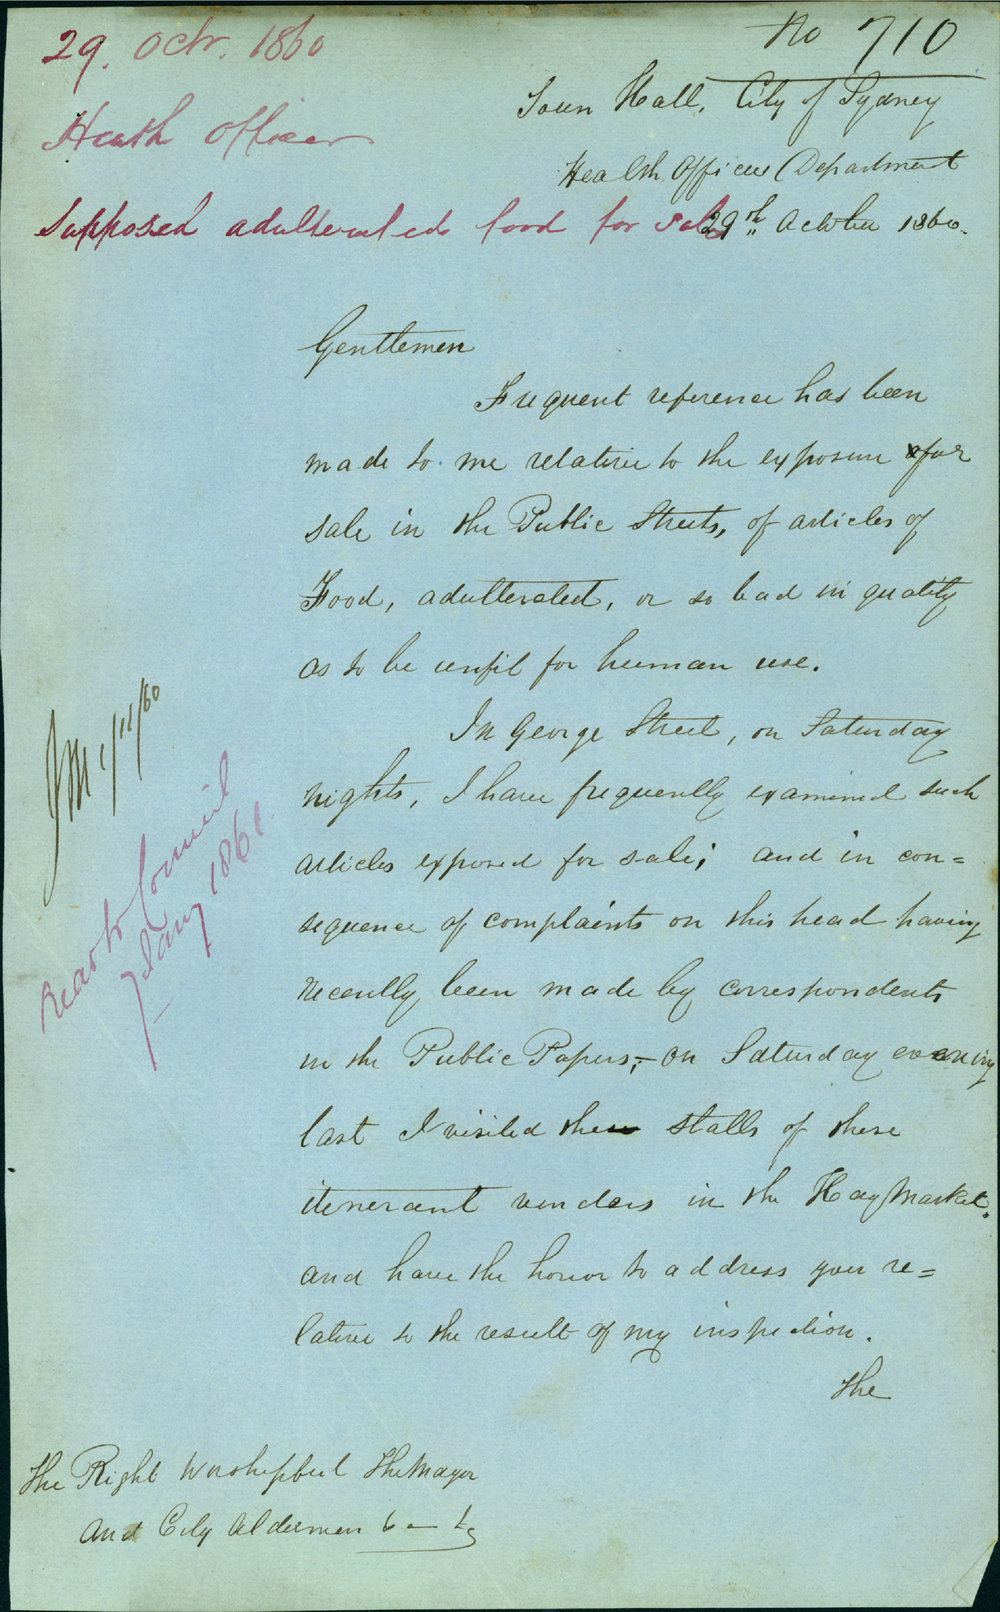 29. Octr. 1860
No 710
Health Officer
Town Hall, City of Sydney
Health Officers Department
Supposed adulterated food for sale
29th October 1860.
Gentlemen
Frequent reference has been
made to me relative to the exposure for
sale in the Public Streets, of articles of
Food, adulterated, or so bad in quality
as to be unfit for human use.
In George Street, on Saturday
nights, I have frequently examined such
articles exposed for sale; and in con=
sequence of complaints on this head having
recently been made by correspondents
in the Public Papers;- on Saturday evening
last I visited the stalls of these
itenerant venders in the Hay Market.
and have the honor to address you re=
lative to the result of my inspection.
The
JM 1/11/60
Read to Council
7 Jany 1861.
The Right Worshipful The Mayor
and City Aldermen